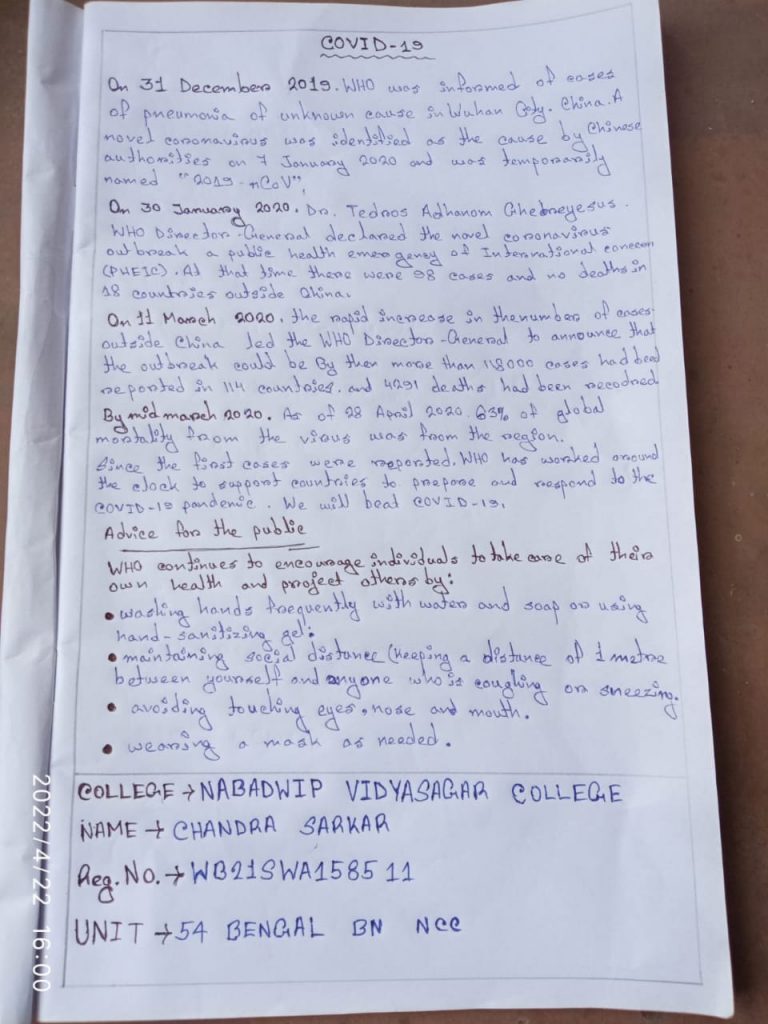 COVID-19
On 31 December 2019. WHO was informed of cases
of pneumonia of unknown cause in Wuhan City. China. A
novel coronavirus was identified as the cause by Chinese
authorities on 7 January 2020 and was temporarily
named "2019-nCoV",
On 30 January 2020. Dr. Tedros Adhanom Ghebreyesus.
WHO Director-General declared the novel coronavirus
outbreak a public health emergency of International concern
(PHEIC). At that time there were 98 cases and no deaths in
18 countries outside China.
On 11 March 2020. the rapid increase in the number of cases
outside China led the WHO Director-General to announce that
the outbreak could be By then more than 118000 cases had beed
reported in 114 countries. and 4291 deaths had been recodred
By mid march 2020. As of 28 April 2020. 63% of global
mortality from the virus was from the region.
Since the first cases were reported. WHO has worked around
the clock to support countries to prepare and respond to the
COVID-19 pandemic. We will beat COVID-19.
Advice for the public
WHO continues to encourage individuals to take care of their
own health and project others by:
• washing hands frequently with water and soap or using
hand-sanitizing gel:
• maintaining social distance (keeping a distance of 1 metre
between yourself and anyone who is coughing or sneezing.
• avoiding touching eyes, nose and mouth.
• wearing a mask as needed.
COLLEGE → NABADWIP VIDYASAGAR COLLEGE
NAME → CHANDRA SARKAR
Reg. No. → WB21SWA158511
UNIT → 54 BENGAL BN NCC
2022/4/22 16:00